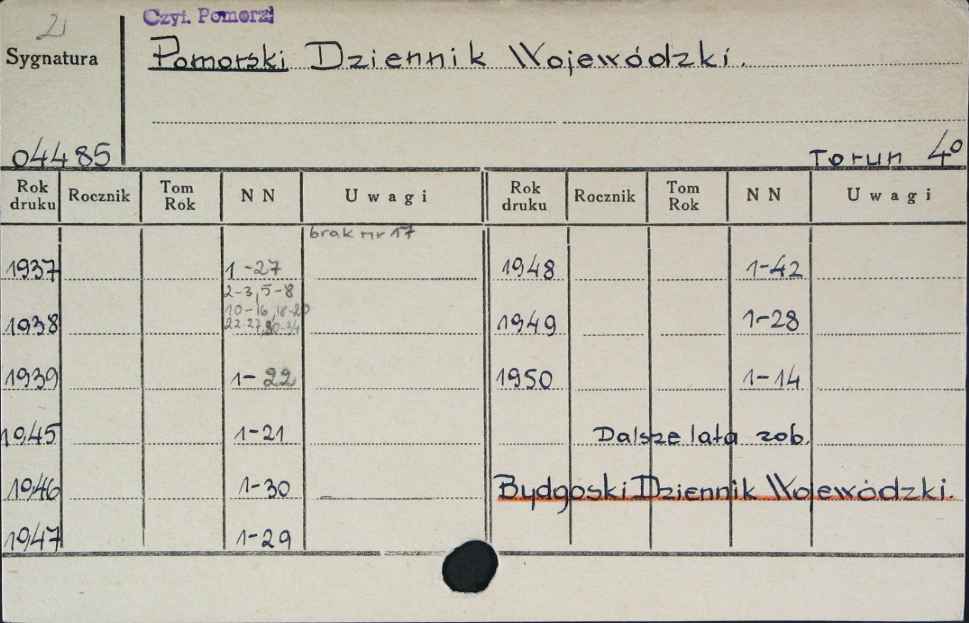 2
Czyt. Pomorz.
Sygnatura
Pomorski Dziennik Wojewódzki.
04485
Toruń 4º
Rok druku Rocznik Tom Rok NN Uwagi Rok druku Rocznik Tom Rok NN Uwagi
brak nr 17
1937 1-27 1948 1-42
2-3, 5-8
10-16, 18-20
1938 22-27, 30-34 1949 1-28
1939 1-22 1950 1-14
1945 1-21 Dalsze lata zob.
1946 1-30 Bydgoski Dziennik Wojewódzki.
1947 1-29